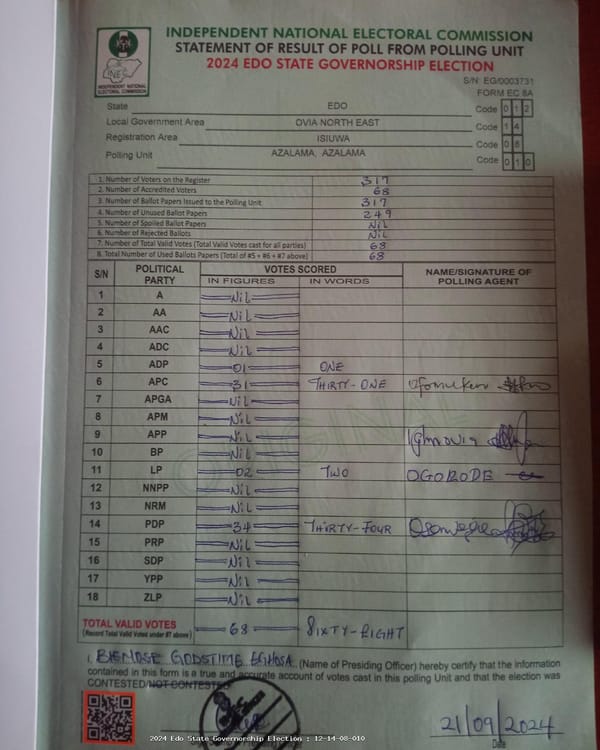 INEC
INDEPENDENT NATIONAL ELECTORAL COMMISSION
INDEPENDENT NATIONAL ELECTORAL COMMISSION
STATEMENT OF RESULT OF POLL FROM POLLING UNIT
2024 EDO STATE GOVERNORSHIP ELECTION
S/N: EG/0003731
FORM EC 8A
State EDO Code 0 1 2
Local Government Area OVIA NORTH EAST Code 1 4
Registration Area ISIUWA Code 0 8
Polling Unit AZALAMA, AZALAMA Code 0 1 0
1. Number of Voters on the Register 317
2. Number of Accredited Voters 68
3. Number of Ballot Papers Issued to the Polling Unit 317
4. Number of Unused Ballot Papers 249
5. Number of Spoiled Ballot Papers NIL
6. Number of Rejected Ballots NIL
7. Number of Total Valid Votes (Total Valid Votes cast for all parties) 68
8. Total Number of Used Ballots Papers (Total of #5 + #6 + #7 above) 68
S/N POLITICAL PARTY VOTES SCORED NAME/SIGNATURE OF POLLING AGENT
IN FIGURES IN WORDS
1 A NIL
2 AA NIL
3 AAC NIL
4 ADC NIL
5 ADP 01 ONE
6 APC 31 THIRTY-ONE
7 APGA NIL
8 APM NIL
9 APP NIL
10 BP NIL
11 LP 02 TWO OGOBODE
12 NNPP NIL
13 NRM NIL
14 PDP 34 THIRTY-FOUR
15 PRP NIL
16 SDP NIL
17 YPP NIL
18 ZLP NIL
ORIGINAL
TOTAL VALID VOTES 68 SIXTY-EIGHT
(Record Total Valid Votes under #7 above)
I, BIENOSE GODSTIME EGHOSA (Name of Presiding Officer) hereby certify that the information
contained in this form is a true and accurate account of votes cast in this polling Unit and that the election was
CONTESTED/NOT CONTESTED
21/09/2024
Date
2024 Edo State Governorship Election : 12-14-08-010